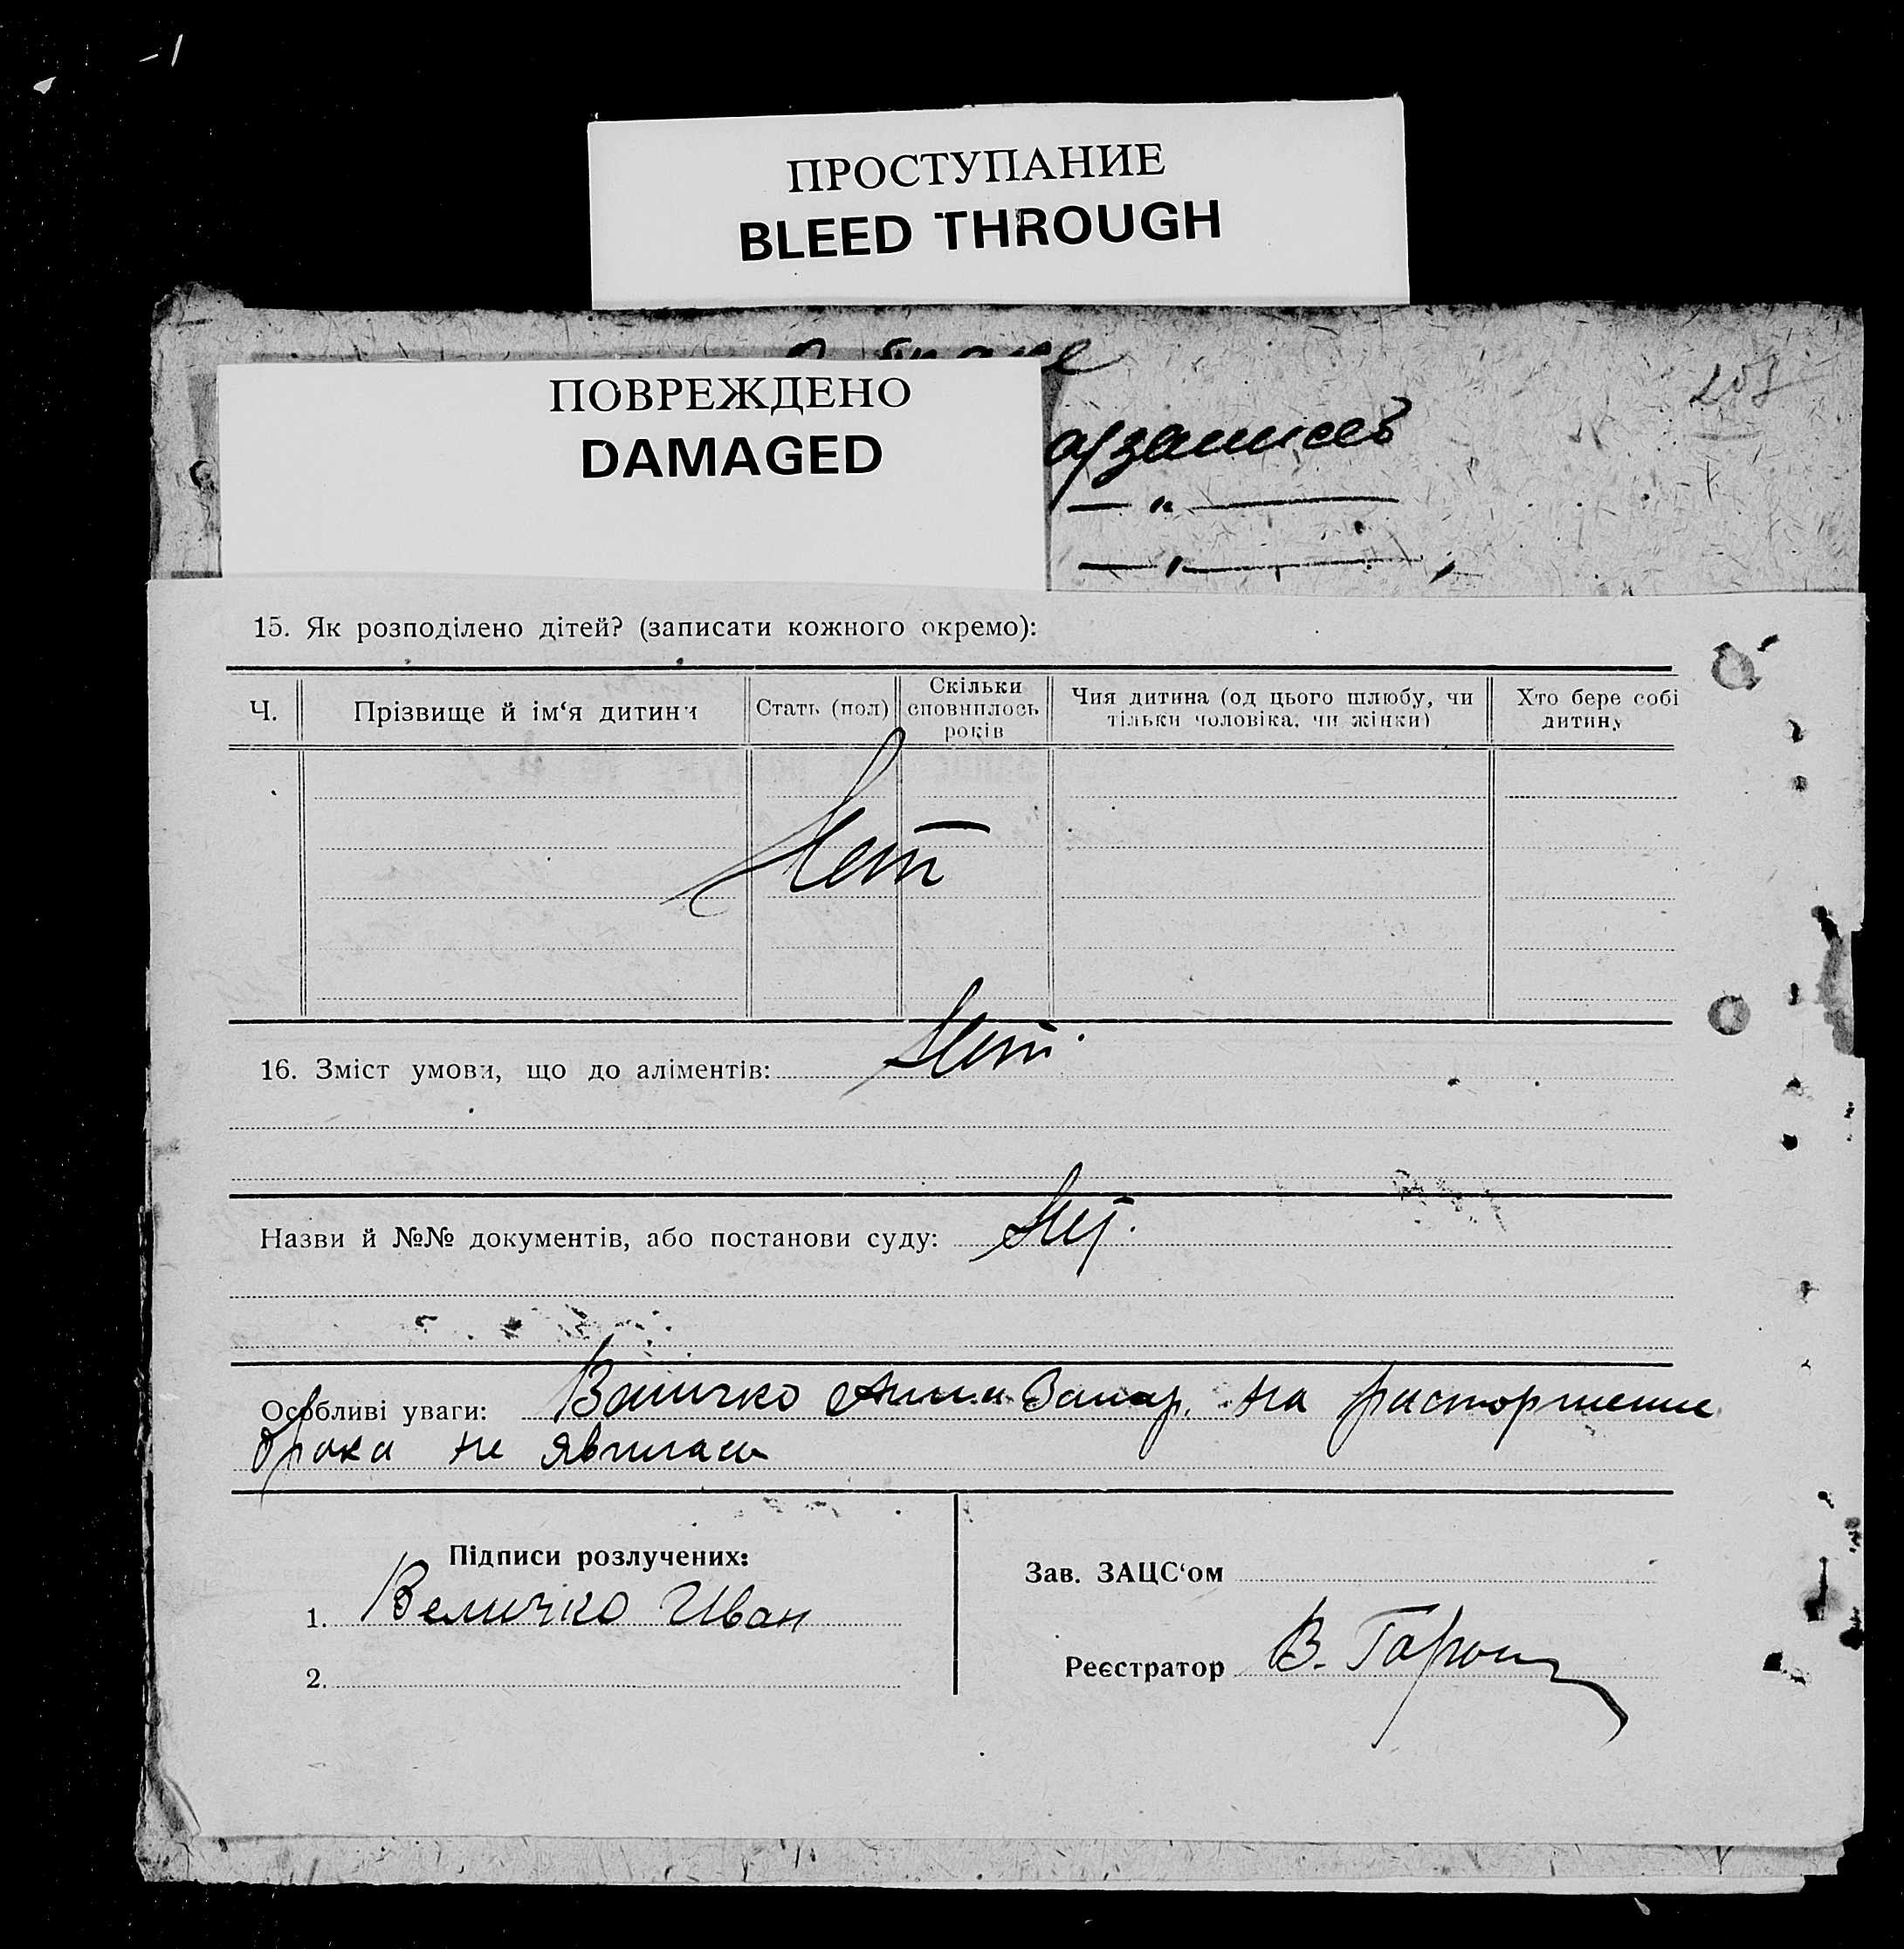 ПРОСТУПАНИЕ
BLEED THROUGH
ПОВРЕЖДЕНО
DAMAGED
15. Як розподілено дітей? (записати кожного окремо):
Ч.
Прізвище й ім'я дитини
Стать (пол)
Скільки
сповнилось
років
Чия дитина (од цього шлюбу, чи
тільки чоловіка, чи жінки)
Хто бере собі
дитину
Нет
16. Зміст умови, що до аліментів: Нет
Назви й №№ документів, або постанови суду: Нет.
Особливі уваги: Величко Анна на расторжение
брака не явилась
Підписи розлучених:
1. Величко Иван
2.
Зав. ЗАЦС'ом
Реєстратор В.